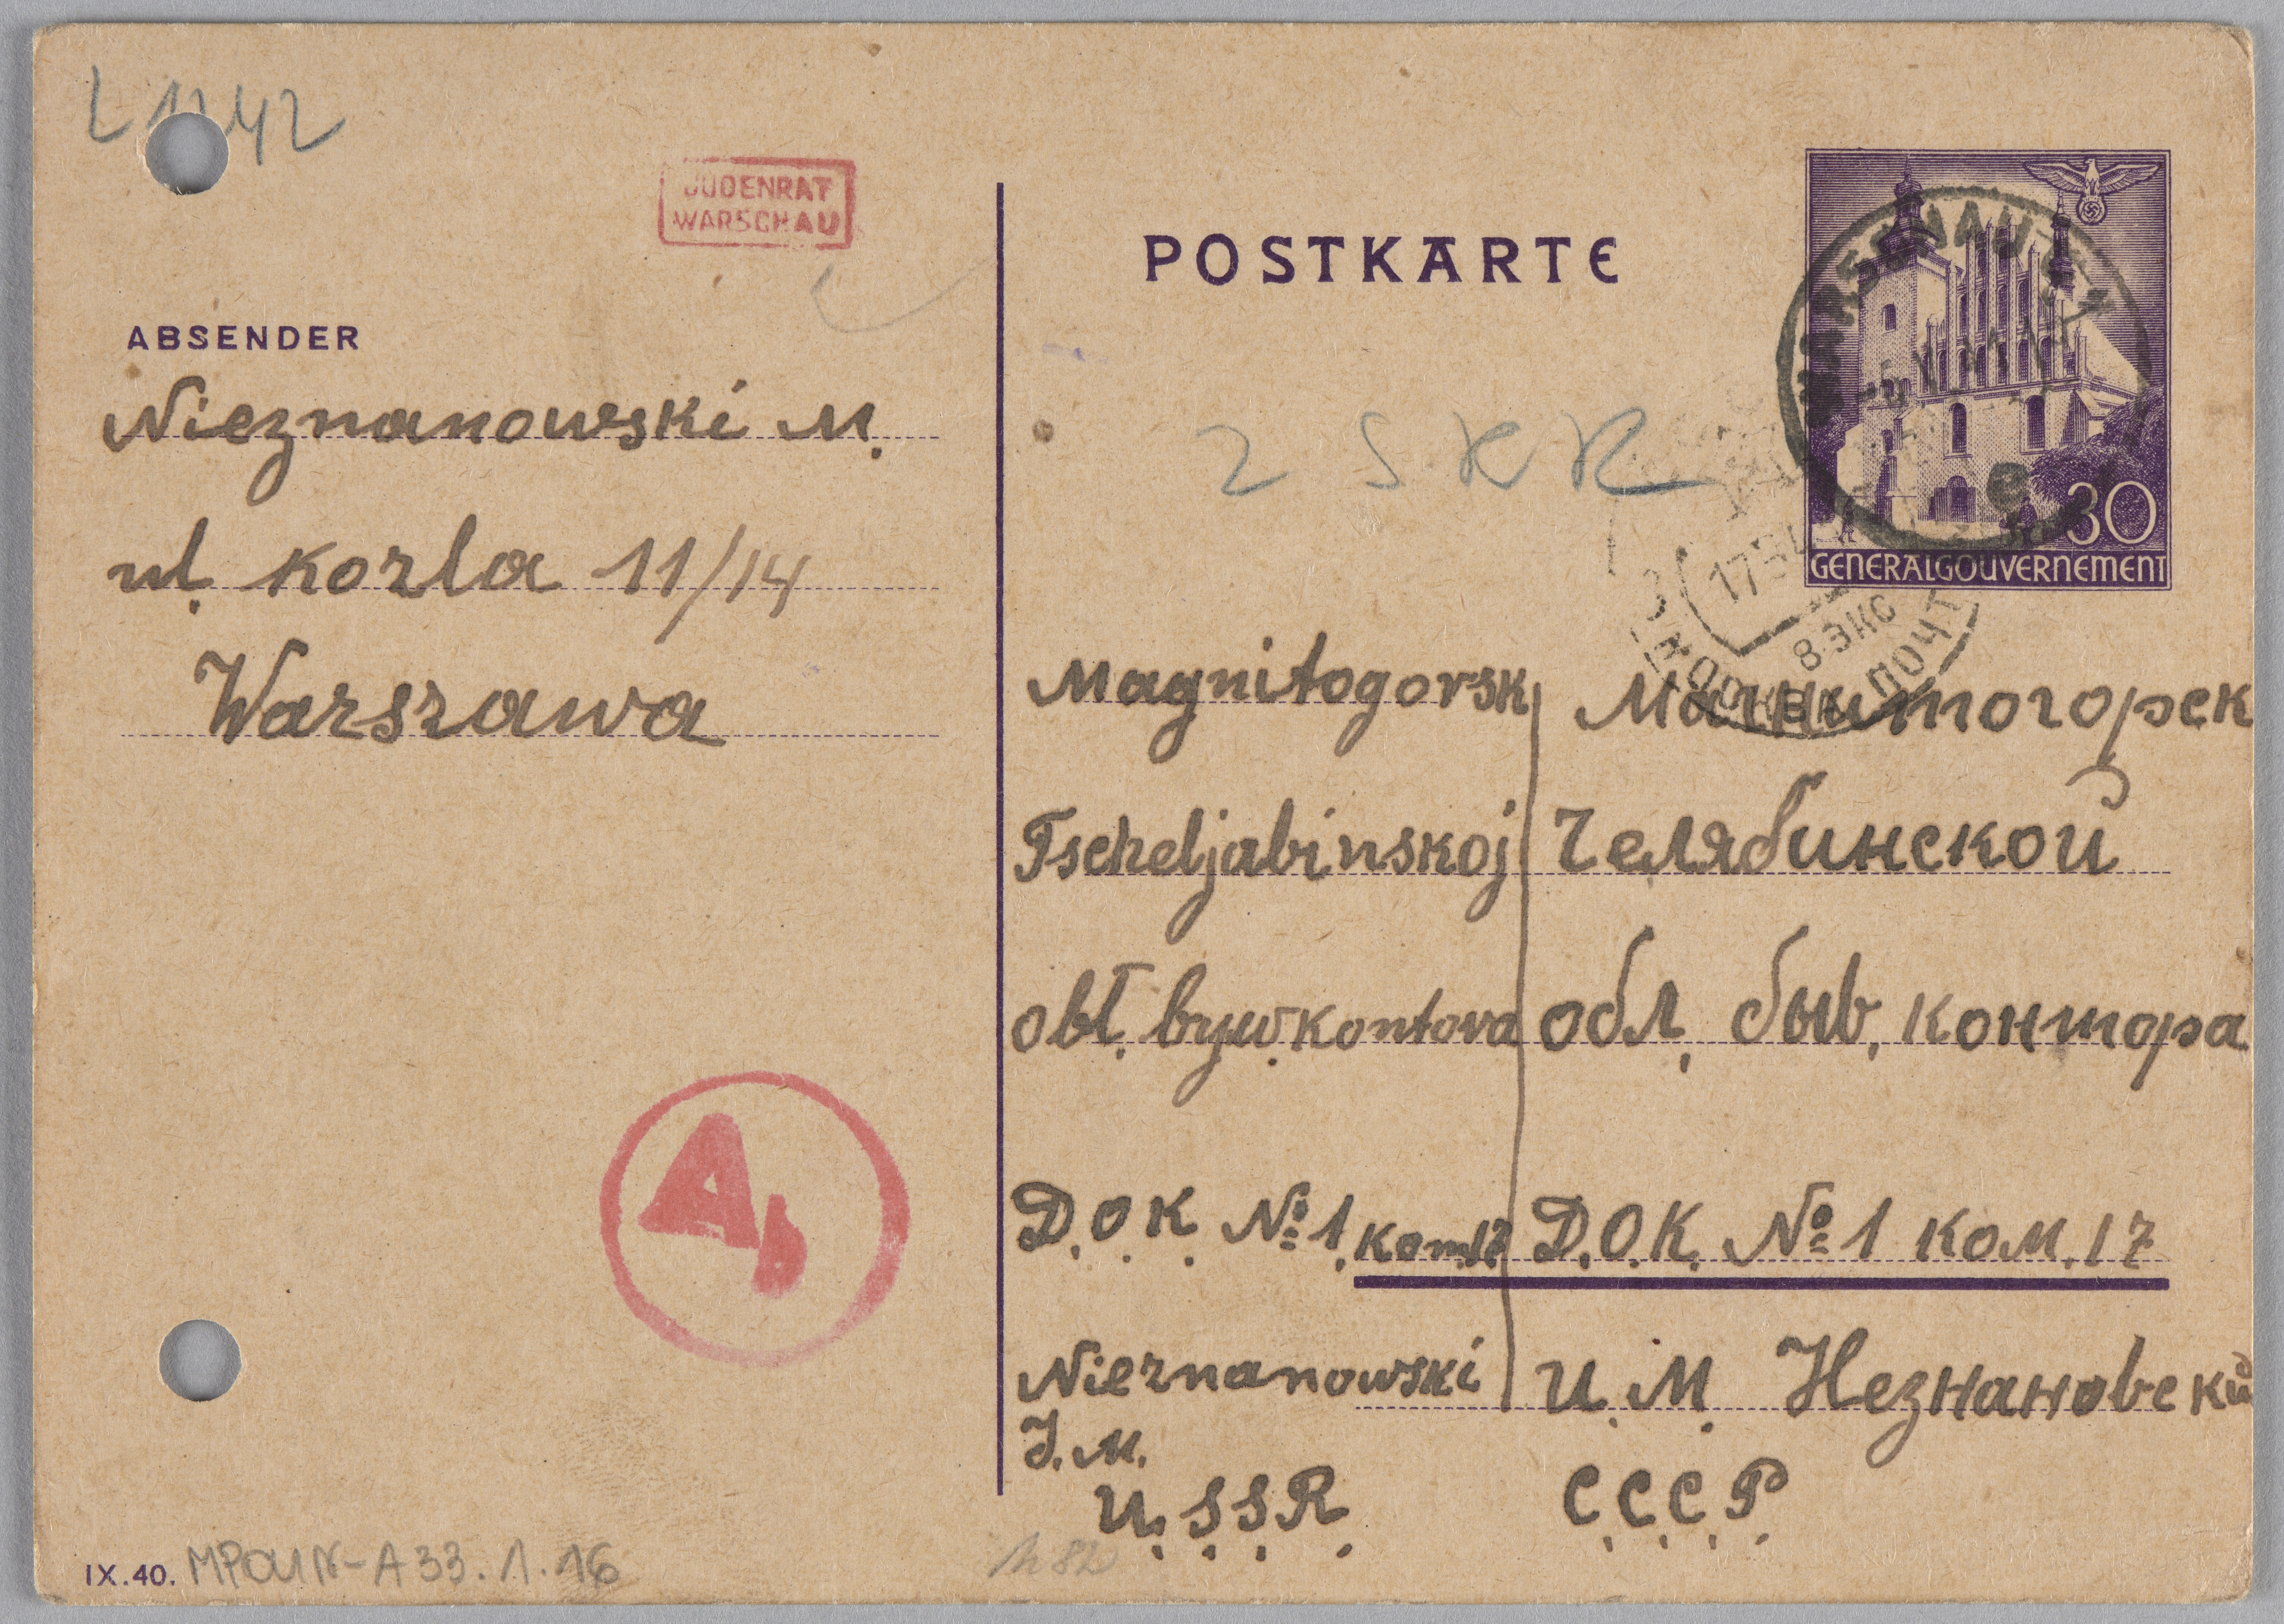 JUDENRAT
WARSCHAU
ABSENDER
Nieznanowski M.
ul. Kozla 11/14
Warszawa
IX.40. MPOLIN-A33.1.16
POSTKARTE
WARSCHAU
30
GENERALGOUVERNEMENT
2 S K K
8 ЭКС
МОСКВА ПОЧТ
Magnitogorsk Магнитогорск
Tscheljabinskoj Челябинской
obł. byw. kontora обл. быв. контора
D.O.K. №1 kom. 17 Д.О.К. №1 ком. 17
Nieznanowski И. М. Незнановский
J. M.
U.S.S.R. С.С.С.Р.
Ab